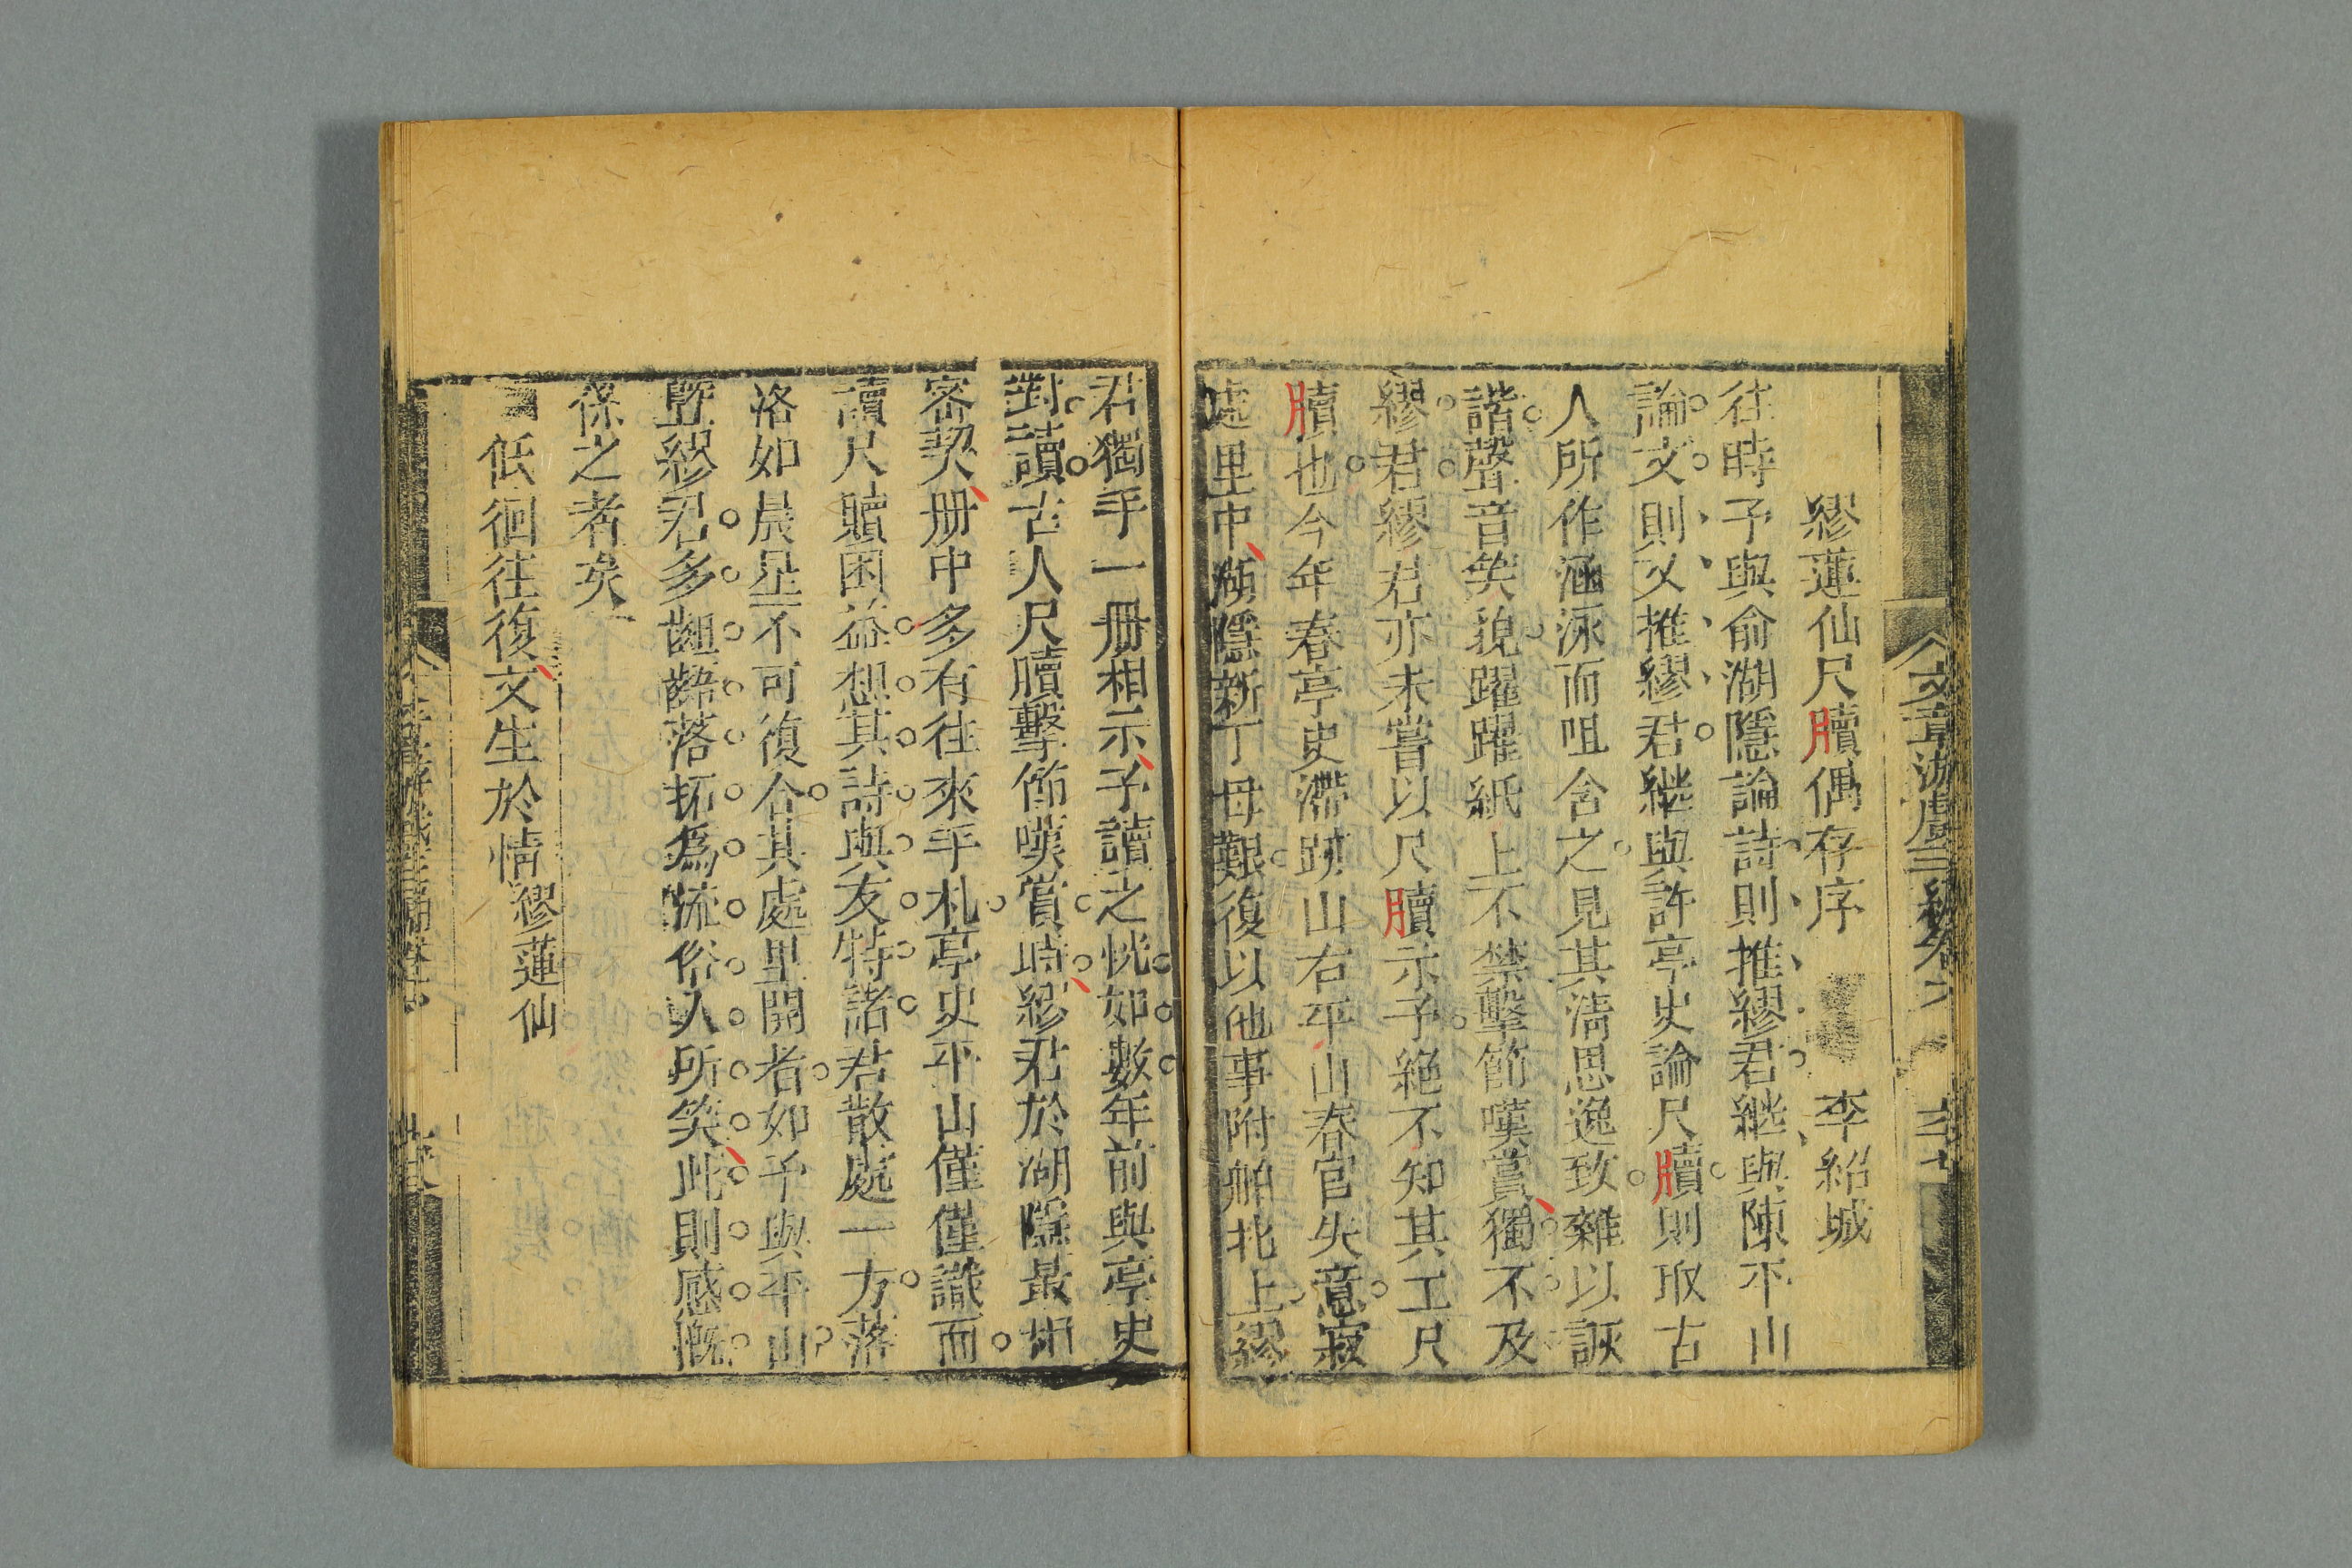 繆蓮仙尺牘偶存序 李紹城
往時予與俞湖隱論詩則推繆君繼與陳平山
論文則又推繆君繼與許亭史論尺牘則取古
人所作涵泳而咀含之見其清思逸致雜以詼
諧聲音笑貌躍躍紙上不禁擊節嘆賞獨不及
繆君繆君亦未嘗以尺牘示予絶不知其工尺
牘也今年春亭史滯跡山右平山春官失意寂
處里中湖隱新丁母艱復以他事附舶北上繆
君獨手一冊相示予讀之恍如數年前與亭史
對讀古人尺牘擊節嘆賞時繆君於湖隱最相
密契册中多有往來手札亭史平山僅僅識面
讀尺牘困益想其詩與友特諸君散處一方落
落如晨星不可復合其處里閈者如予與平山
暨繆君多齟齬落拓為流俗人所笑此則感慨
係之者矣
低徊往復文生於情 繆蓮仙
文章游戲三編卷六